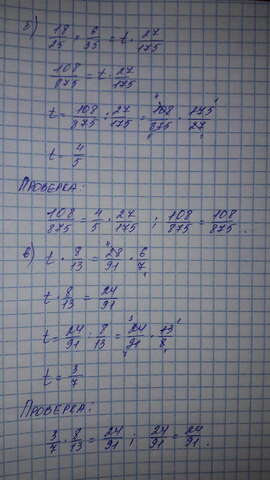 б) 18/25 · 6/35 = t · 27/175
108/875 = t · 27/175
t = 108/875 : 27/175 = 108/875 · 175/27
t = 4/5
Проверка:
108/875 = 4/5 · 27/175 ; 108/875 = 108/875 .
в) t · 8/13 = 28/91 · 6/7
t · 8/13 = 24/91
t = 24/91 : 8/13 = 24/91 · 13/8
t = 3/7
Проверка:
3/7 · 8/13 = 24/91 ; 24/91 = 24/91 .